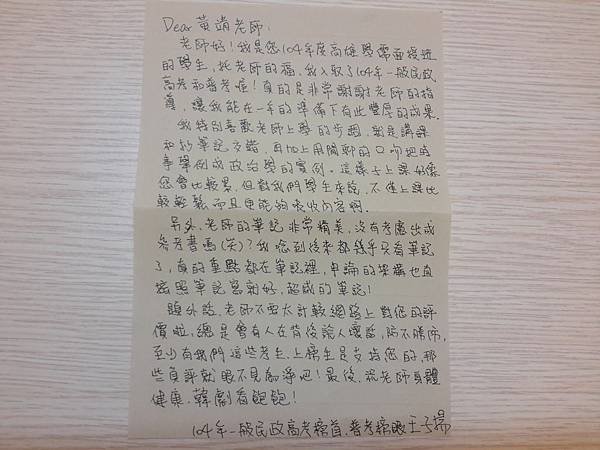 Dear 黃靖老師:
老師好!我是您104年度高雄學儒面授班
的學生,托老師的福,我入取了104年一般民政
高考和普考喔!真的是非常謝謝老師的指
導,讓我能在一年的準備下有此豐厚的成果。
我特別喜歡老師上學的步調,就是講課
和抄筆記交錯,再加上用閒聊的口吻把時
事舉例成政治學的實例。這樣子上課好像
您會比較累,但對我們學生來說,不僅上課比
較輕鬆而且更能夠吸收內容啊。
另外,老師的筆記非常精美,沒有考慮出成
參考書嗎(笑)?我唸到後來都幾乎只看筆記
了,真的重點都在筆記裡,申論的架構也直
接照筆記寫就好,超威的筆記!
題外話,老師不要太計較網路上對您的評
價啦,總是會有人在背後說人壞話,防不勝防,
至少有我們這些考生、上榜生是支持您的,那
些負評就眼不見為淨吧!最後,祝老師身體
健康,韓劇看飽飽!
104年一般民政高考榜首、普考榜眼 王子揚